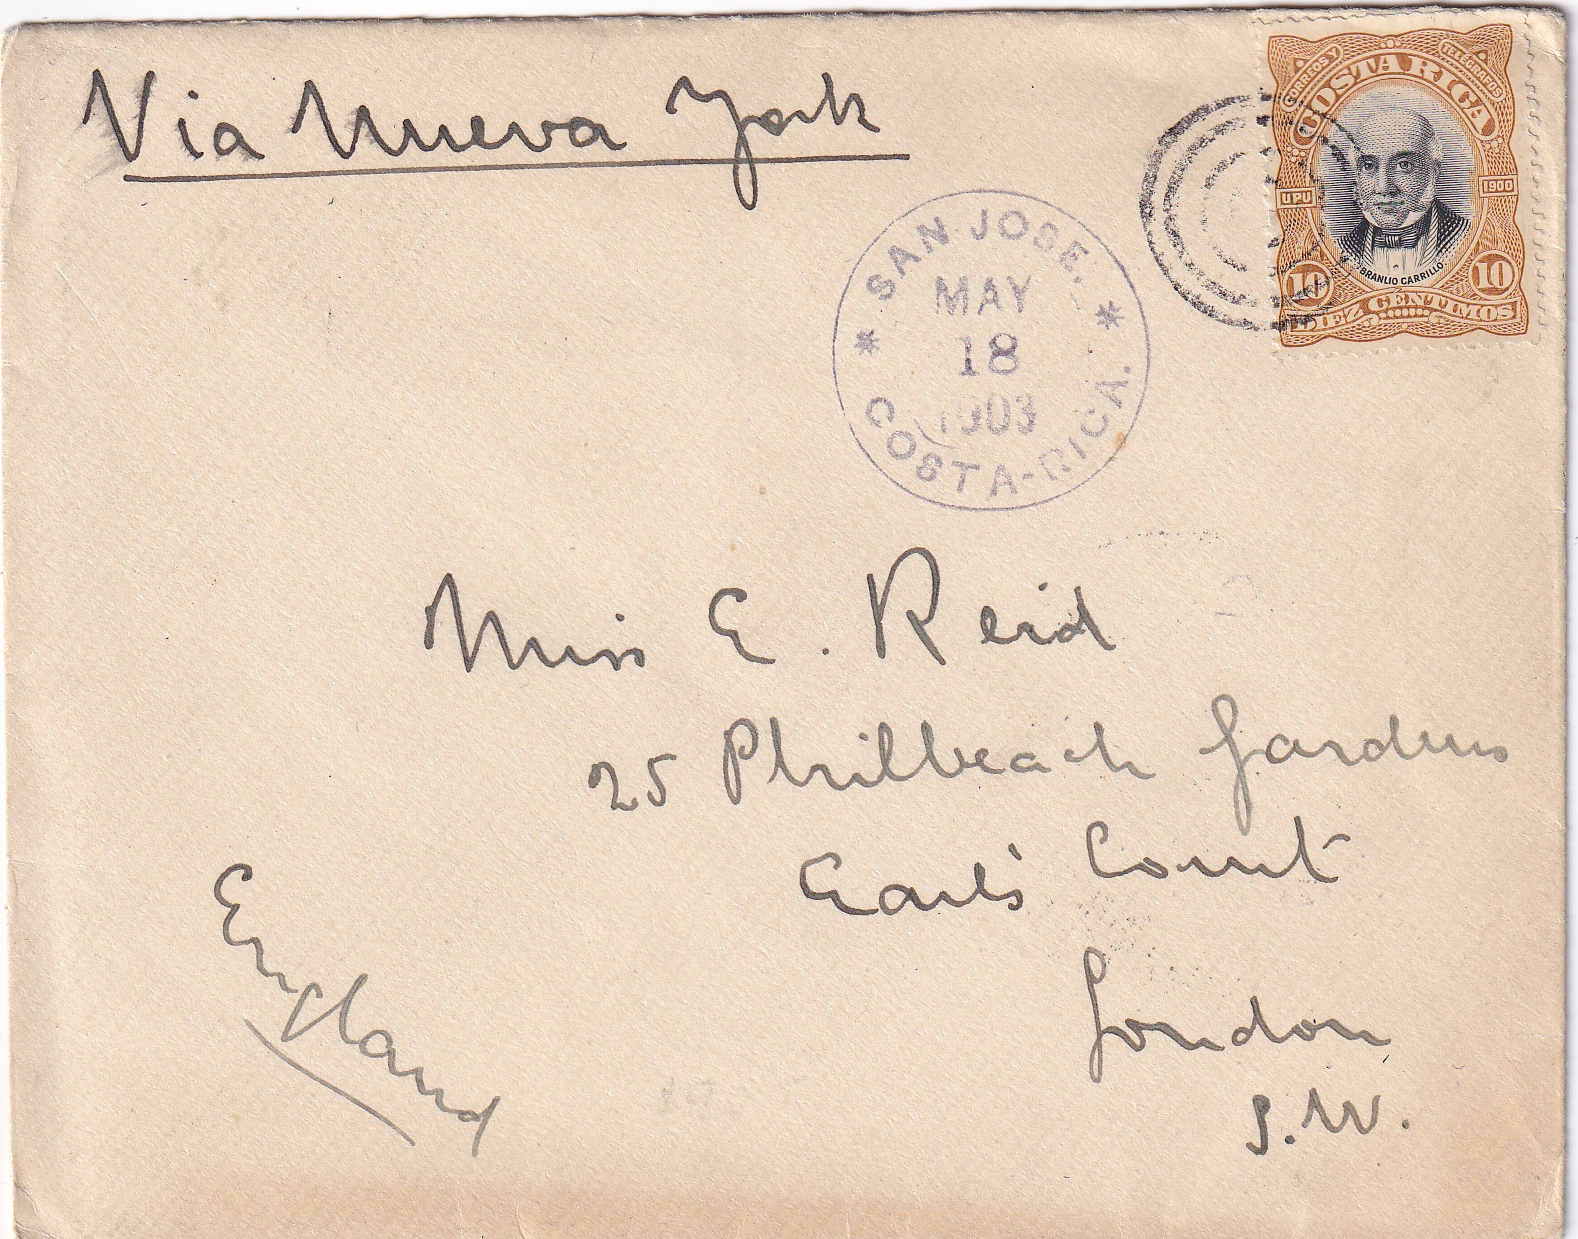 Via Nueva York
CORREOS Y TELEGRAFOS
COSTA RICA
UPU 1900
BRANLIO CARRILLO
10 10
DIEZ CENTIMOS
SAN JOSE.
MAY
18
1903
COSTA-RICA.
Miss E. Reid
25 Philbeach Gardens
Earl's Court
London
S.W.
England